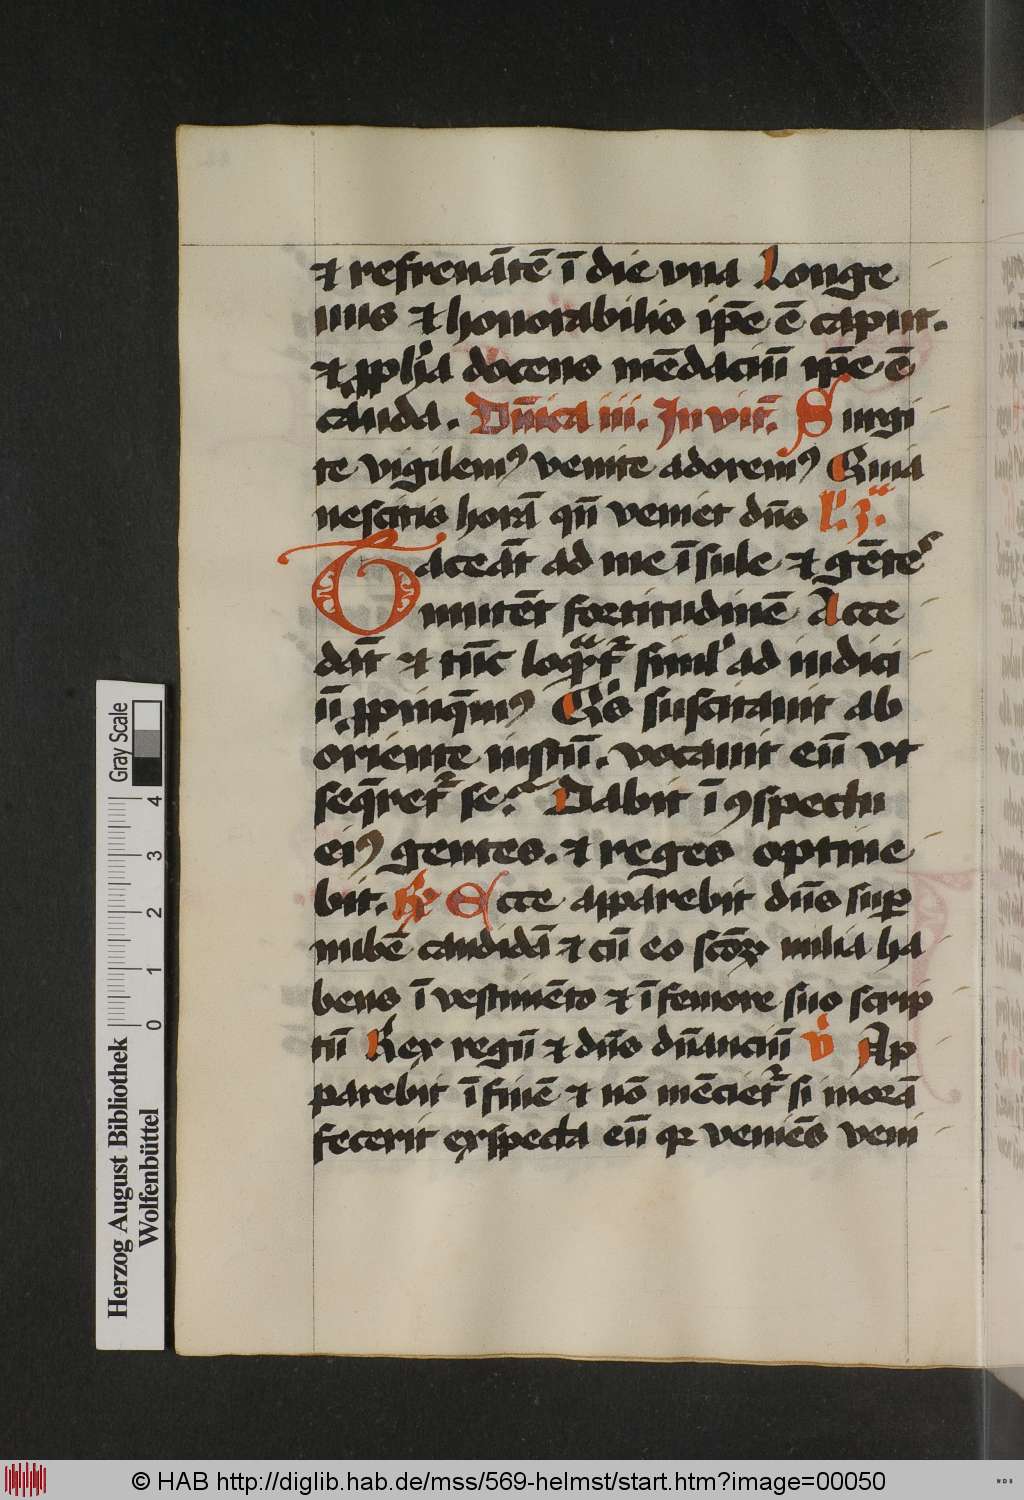 ⁊ refrenātē ī die vna Longe
uus ⁊ honorabilis ip̄e ē caput.
⁊ ꝓph̓a docens mēdaciū ip̄e ē
cauda. Dn̄ica iii. In vit̄. Surgi
te vigilemꝰ venite adoremꝰ Quia
nescitis horā qn̄ veniet dn̄s l̓. 3ᵃ.
Taceāt ad me īsule ⁊ gētes
mutēt fortitudinē Acce
dāt ⁊ tūc loqᵃt᷑ siml̓ ad iudici
ū ꝓpinq̄mꝰ Qͥs suscitauit ab
oriente iustū. vocauit eū vt
seq̄ret᷑ se. Dabit ī ꝯspectu
eiꝰ gentes. ⁊ reges optine
bit. R̓ Ecce apparebit dn̄s suꝑ
nubē candidā ⁊ cū eo scōꝝ milia ha
bens ī vestimēto ⁊ ī femore suo scrip
tū Rex regū ⁊ dn̄s dn̄anciū v̓ Ap
parebit ī finē ⁊ nō mēciet᷑ si morā
fecerit expecta eū qꝛ veniēs veni
Gray Scale
4
3
2
1
0
Herzog August Bibliothek
Wolfenbüttel
© HAB http://diglib.hab.de/mss/569-helmst/start.htm?image=00050